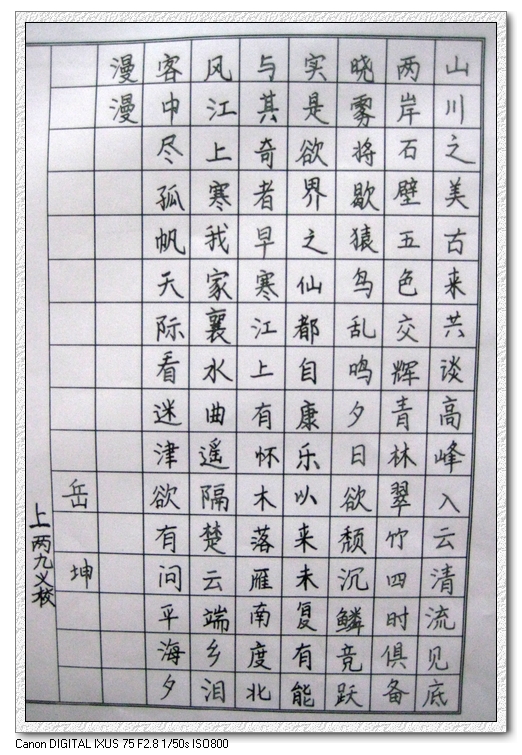 山川之美古来共谈高峰入云清流见底
两岸石壁五色交辉青林翠竹四时俱备
晓雾将歇猿鸟乱鸣夕日欲颓沉鳞竞跃
实是欲界之仙都自康乐以来未复有能
与其奇者早寒江上有怀木落雁南度北
风江上寒我家襄水曲遥隔楚云端乡泪
客中尽孤帆天际看迷津欲有问平海夕
漫漫
岳坤
上两九义校
Canon DIGITAL IXUS 75 F2.8 1/50s ISO800